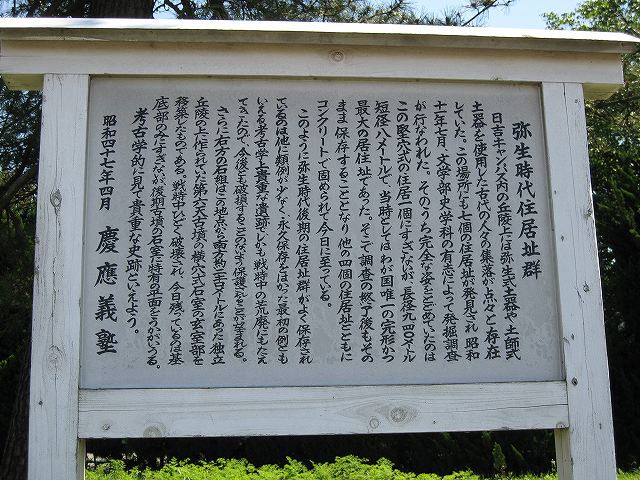 弥生時代住居址群
日吉キャンパス内の丘陵上には弥生式土器や土師式
土器を使用した古代の人々の集落が点々と存在
していた。この場所にも七個の住居址が発見され昭和
十一年七月、文学部史学科の有志によって発掘調査
が行なわれた。そのうち完全な姿をとどめていたのは
この竪穴式の住居一個にすぎないが、長径九・四〇メートル
短径八メートルで、当時としてはわが国唯一の完形かつ
最大の居住址であった。そこで調査の終了後もその
まま保存することとなり他の四個の住居址とともに
コンクリートで固められて今日に至っている。
このように弥生時代後期の住居址群がよく保存され
ているのは他に類例が少なく、永久保存をはかった最初の例とも
いえる考古学上貴重な遺跡でしかも戦時中の荒廃にもたえ
てきたので、今後とも破損することのないよう保護されることが望まれる。
さらに右方の石組はこの地点から南方約二五〇メートルにあった独立
丘陵の上に作られていた第六天古墳の横穴式石室の玄室部を
移築したものである。戦時中ひどく破壊され、今日残っているのは基
底部のみにすぎないが後期古墳の石室に特有の平面をうかがいうる。
考古学的に見て貴重な史跡といえよう。
昭和四十七年四月 慶應義塾